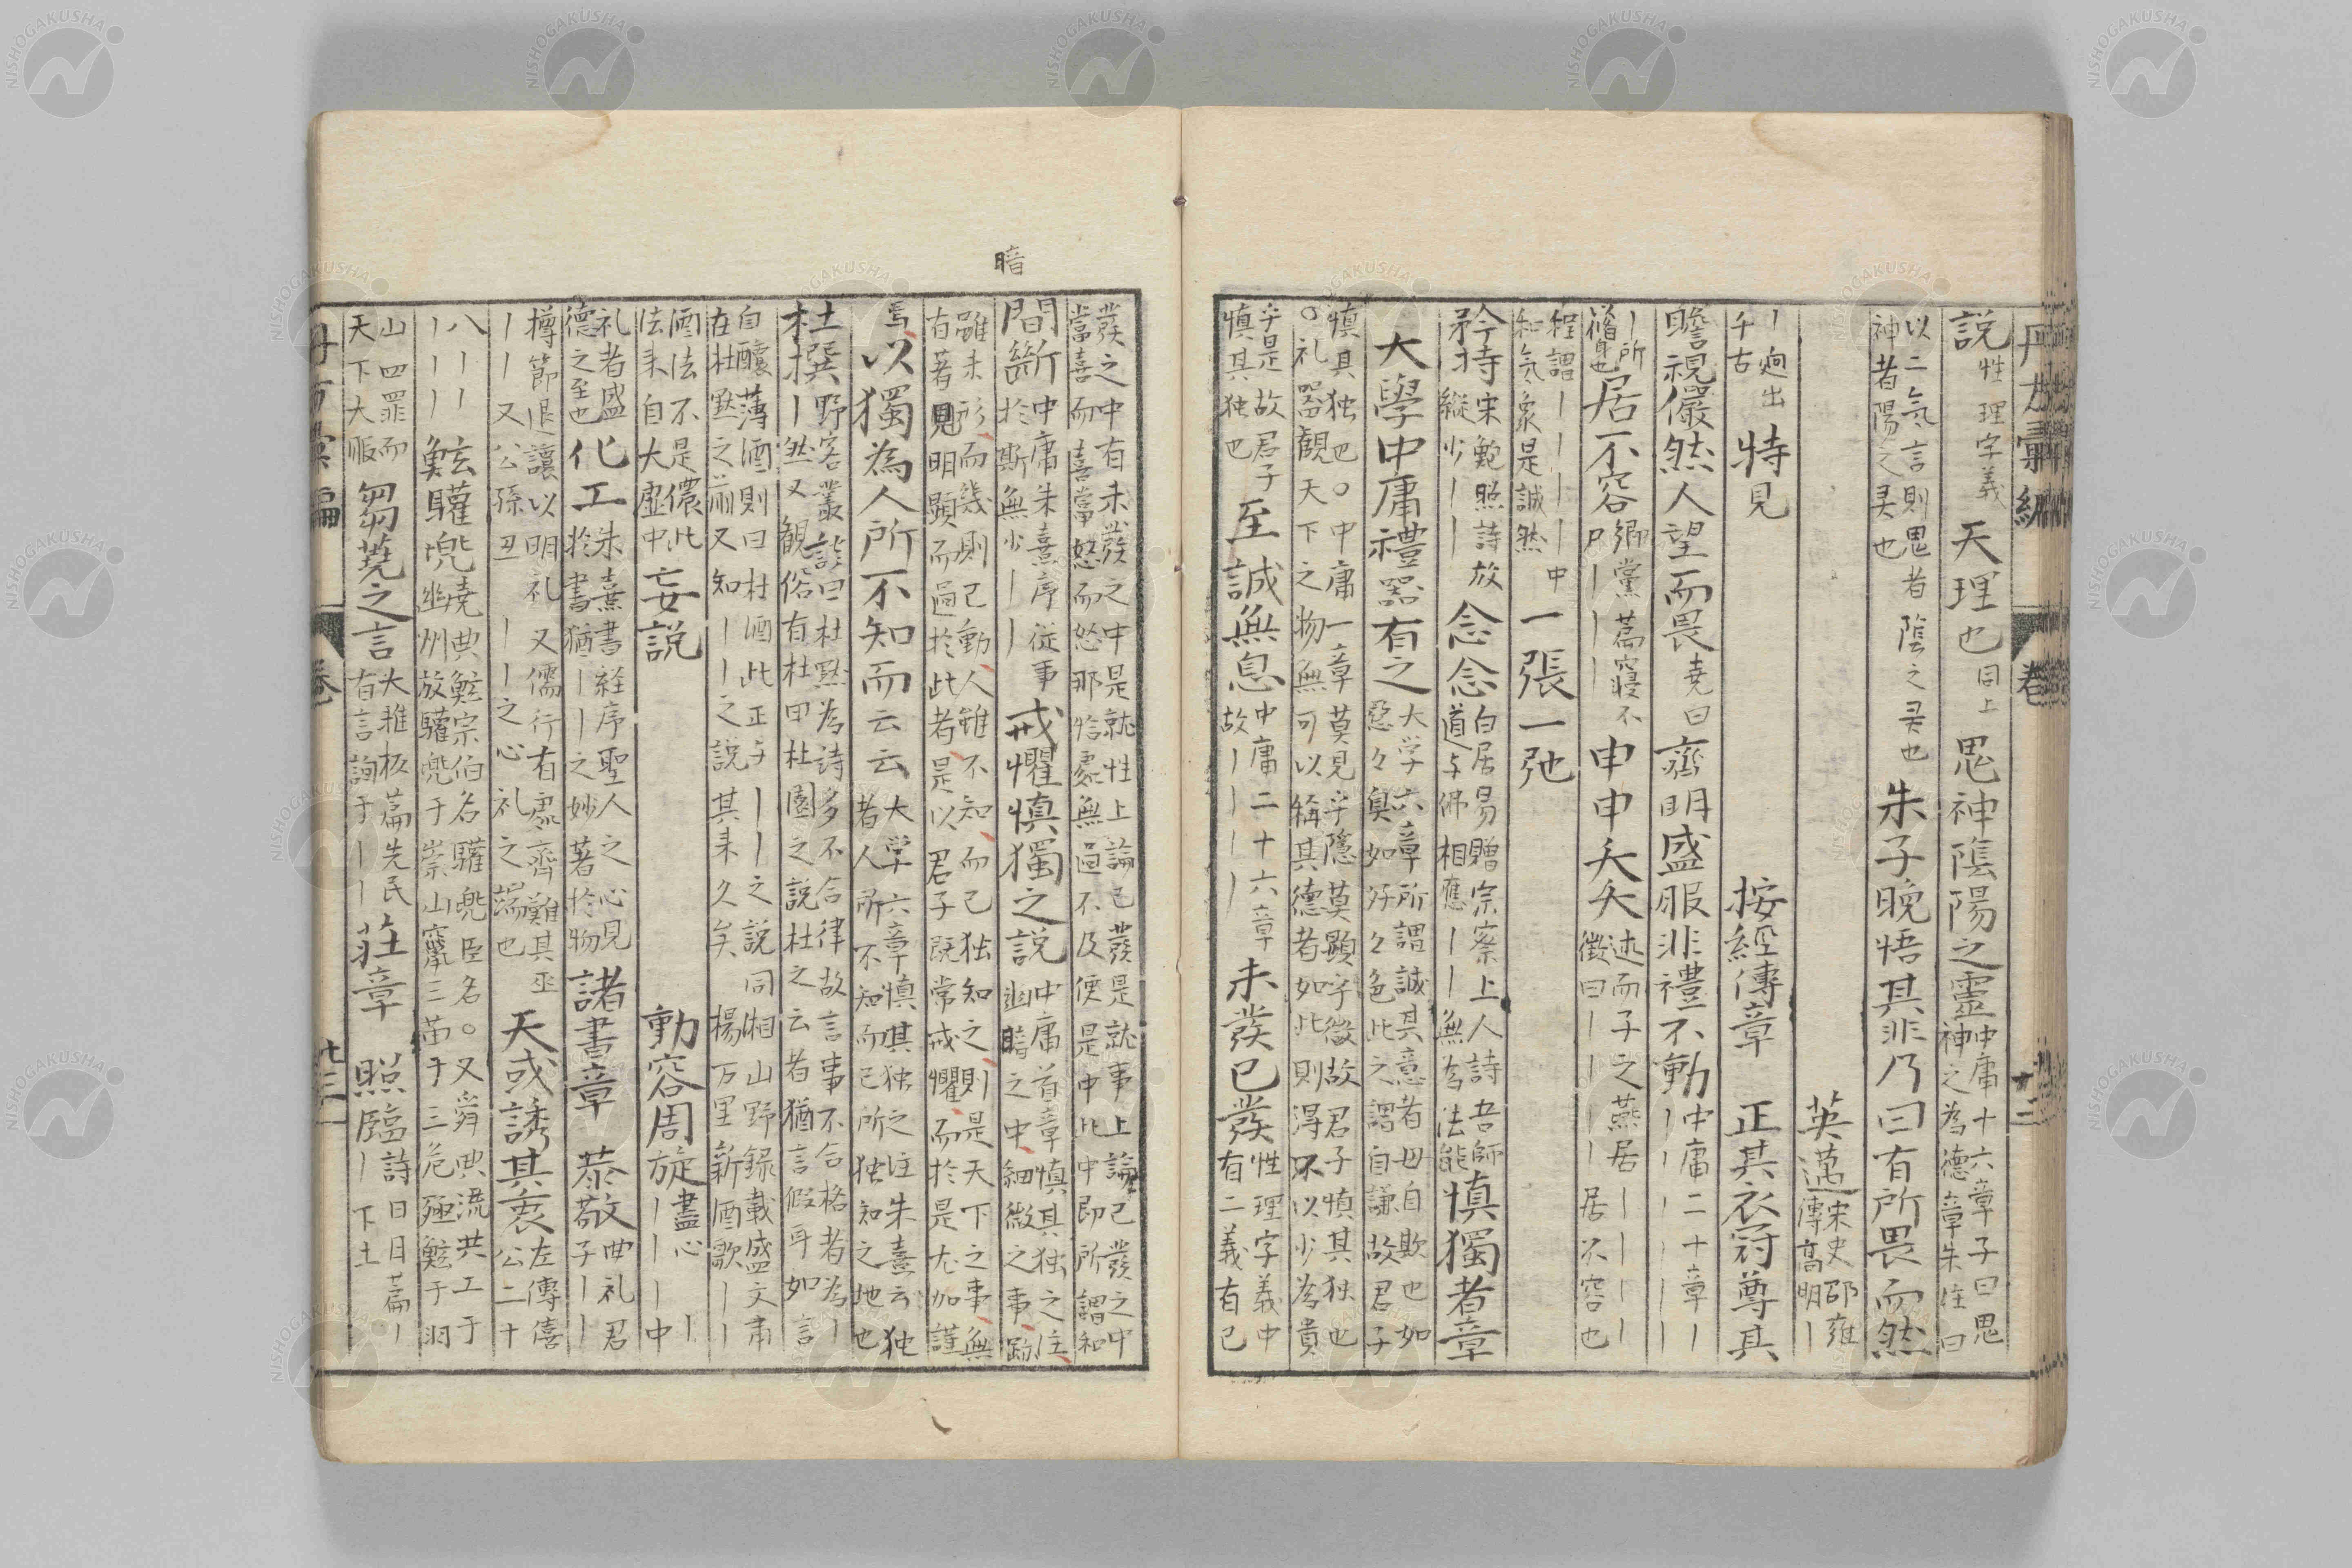 丹方彙編 卷 十二
説性理字義天理也同上鬼神陰陽之靈中庸十六章子曰鬼神之為德章朱注曰
以二気言則鬼者陰之灵也神者陽之灵也朱子晩悟其非乃曰有所畏而然
英邁宋史邵雍傳高明丨
丨逈出千古特見 按經傳章 正其衣冠尊其
瞻視儼然人望而畏尭曰齊明盛服非禮不動中庸二十章丨丨丨丨丨丨
丨所以脩身也居不容郷黨篇寝不尸丨丨丨申申夭夭述而子之燕居丨丨丨丨徵曰丨丨丨丨居不容也
程謂丨丨丨丨中和気象是誠然一張一弛
矜持宋鮑照詩放縱少丨丨念念白居易贈宗密上人詩吾師道与佛相應丨丨無為法能慎獨者章
大學中庸禮器有之大学六章所謂誠其意者毋自欺也如惡々臭如好々色此之謂自謙故君子
慎其独也○中庸一章莫見乎隠莫顕乎微故君子慎其独也○礼器觀天下之物無可以稱其德者如此則得不以少為貴
乎是故君子慎其独也至誠無息中庸二十六章故丨丨丨丨未發已發性理字義中有二義有已
暗
發之中有未發之中是就性上論已發是就事上論已發之中當喜而喜當怒而怒那恰處無過不及便是中此中即所謂和
間斷中庸朱熹序従事於斯無少丨丨戒懼慎獨之説中庸首章慎其独之注幽暗之中細微之事跡
雖未形而幾則已動人雖不知而已独知之則是天下之事無有著見明顕而過於此者是以君子既常戒懼而於是尤加謹
焉以獨為人所不知而云云大学六章慎其独之注朱熹云独者人所不知而已所独知之地也
杜撰丨野客叢談曰杜黙為詩多不合律故言事不合格者為丨然又觀俗有杜田杜園之説杜之云者猶言假耳如言
自釀薄酒則曰杜酒此正与丨丨之説同湘山野録載盛文肅在杜黙之前又知丨丨之説其来久矣楊万里新酒歌丨丨
酒法不是儂此法来自大虚中妄説 動容周旋盡心丨丨丨丨丨中
礼者盛德之至也化工朱熹書経序聖人之心見於書猶丨丨之妙著於物諸書章 恭敬曲礼君子丨丨
樽節退讓以明礼又儒行有衰齊難其坐丨丨又公孫丑丨丨之心礼之端也天或誘其衷左傳僖公二十
八丨丨丨丨丨鮌驩兜堯典鮌宗伯名驩兜臣名○又舜典流共工于幽州放驩兜于崇山竄三苗于三危殛鮌于羽
山四罪而天下大服芻蕘之言大雅板篇先民有言詢于丨丨荘章 照臨詩曰日篇丨丨下土
丹方彙編 卷 十三
NISHOGAKUSHA